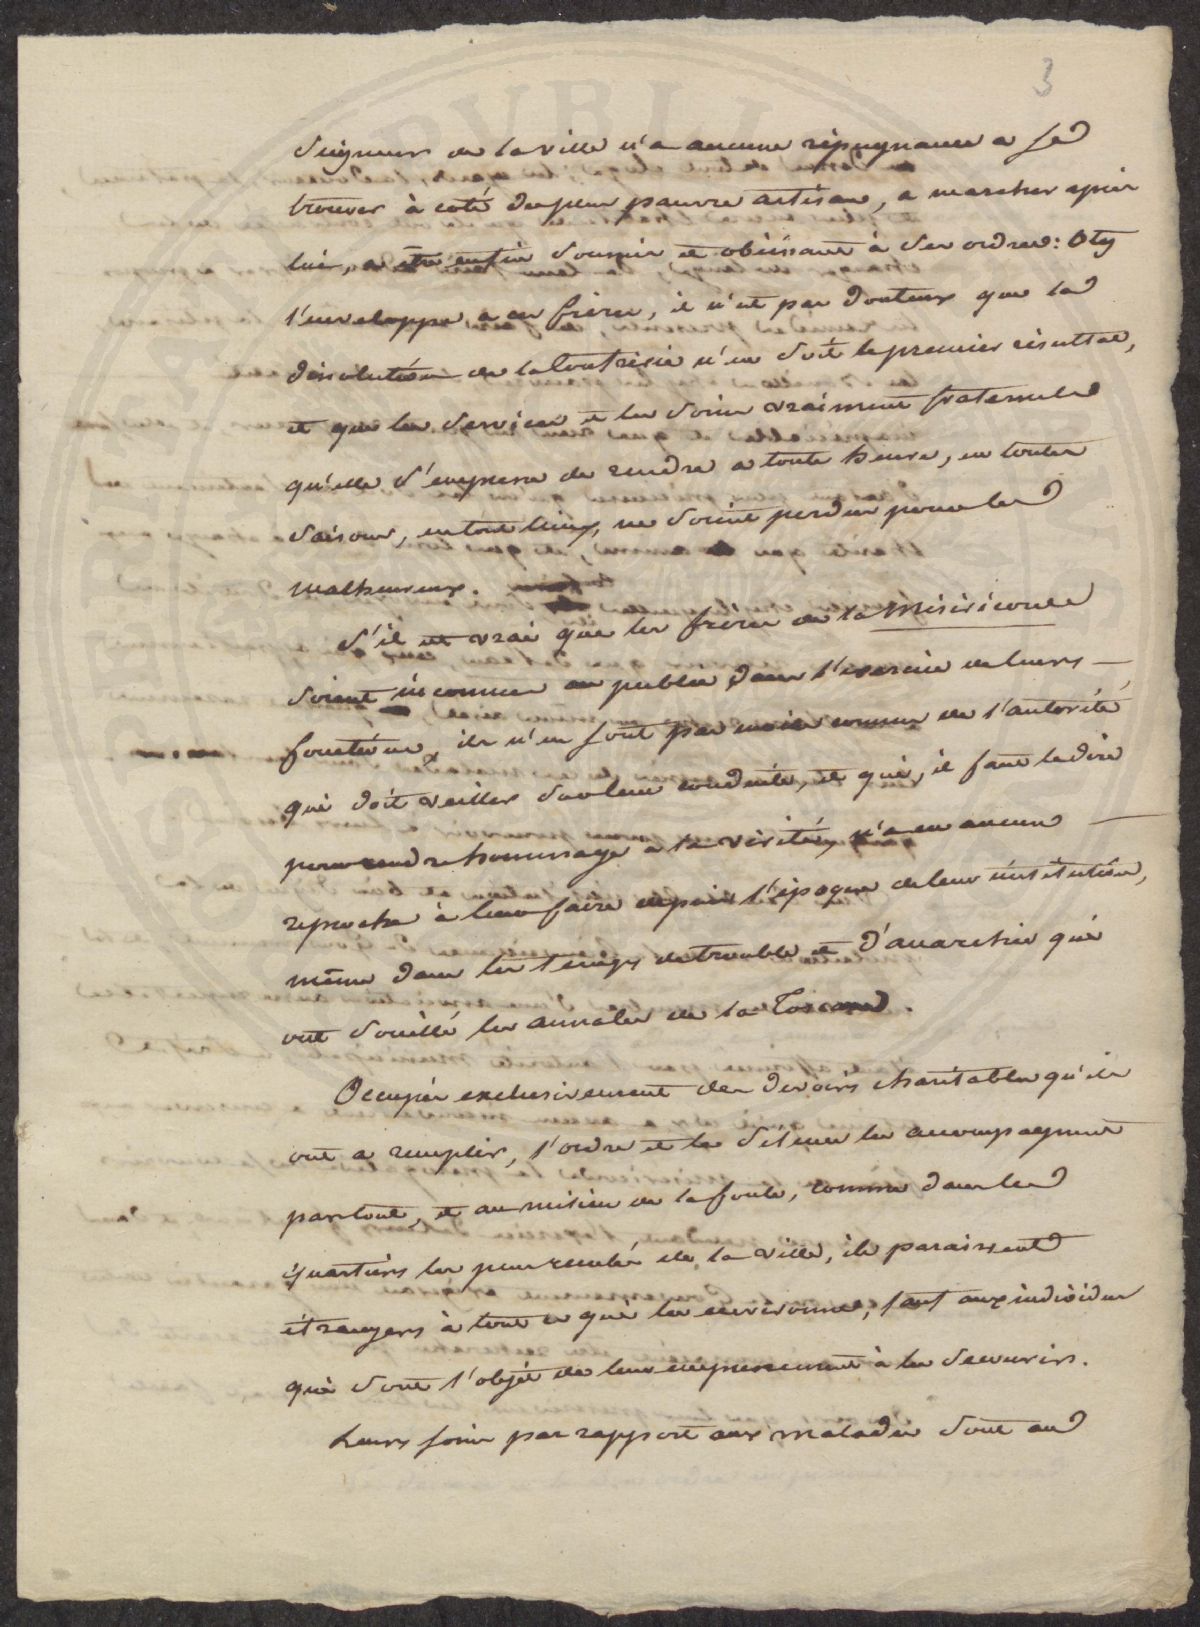 3
Seigneurs de la ville n'a aucune répugnance a se
trouver à coté du plus pauvre artisan, a marcher après
lui, a être enfin soumis et obéissant à ses ordres: Otez
l'enveloppe a ces frères, il n'est pas douteux que la
dissolution de la Confrérie n'en soit le premier résultat,
et que les services et les soins vraiment fraternels
qu'elle s'empresse de rendre a toute heure, en toutes
saisons, en tout tems, ne soient perdus pour les
malheureux.
S'il est vrai que les frères de la Miséricorde
soient inconnus au public dans l'exercice de leurs
fonctions, ils n'en sont pas moins connus de l'autorité
qui doit veiller sur leur conduite, et qui, il faut le dire
pour rendre hommage a la vérité, n'a eu aucun
reproche à leur faire depuis l'époque de leur institution,
même dans les temps de trouble et d'anarchie qui
ont souillé les annales de la Toscane.
Occupés exclusivement des devoirs charitables qu'ils
ont a remplir, l'ordre et le silence les accompagnent
partout, et au milieu de la foule, comme dans les
quartiers les plus reculés de la ville, ils paraissent
étrangers à tout ce qui les environne, sauf aux individus
qui sont l'objet de leur empressement à les secourir.
Leurs soins par rapport aux malades sont au